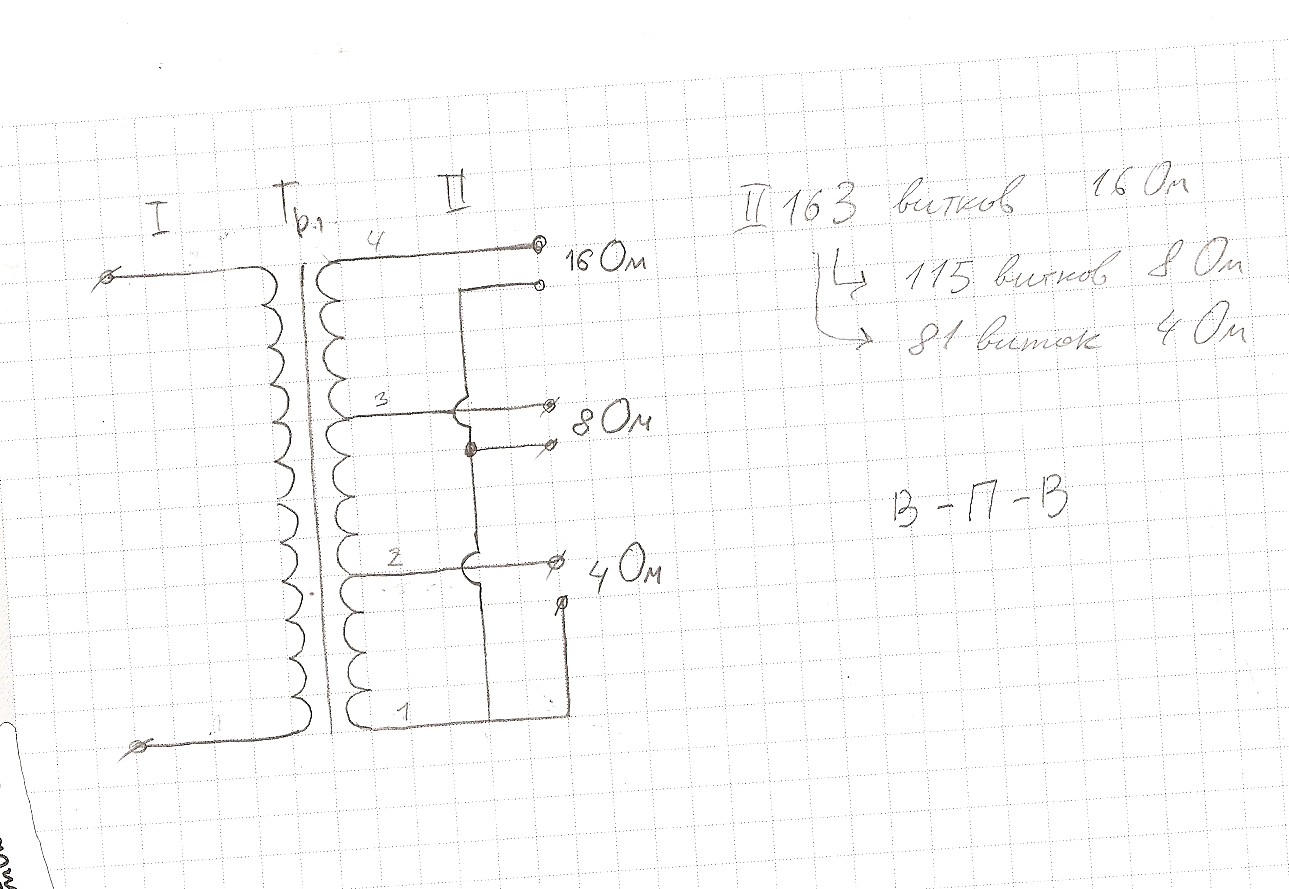 I Тр.1 II
4
16 Ом
3
8 Ом
2
4 Ом
1
1
II 163 витков 16 Ом
115 витков 8 Ом
81 виток 4 Ом
В - П - В